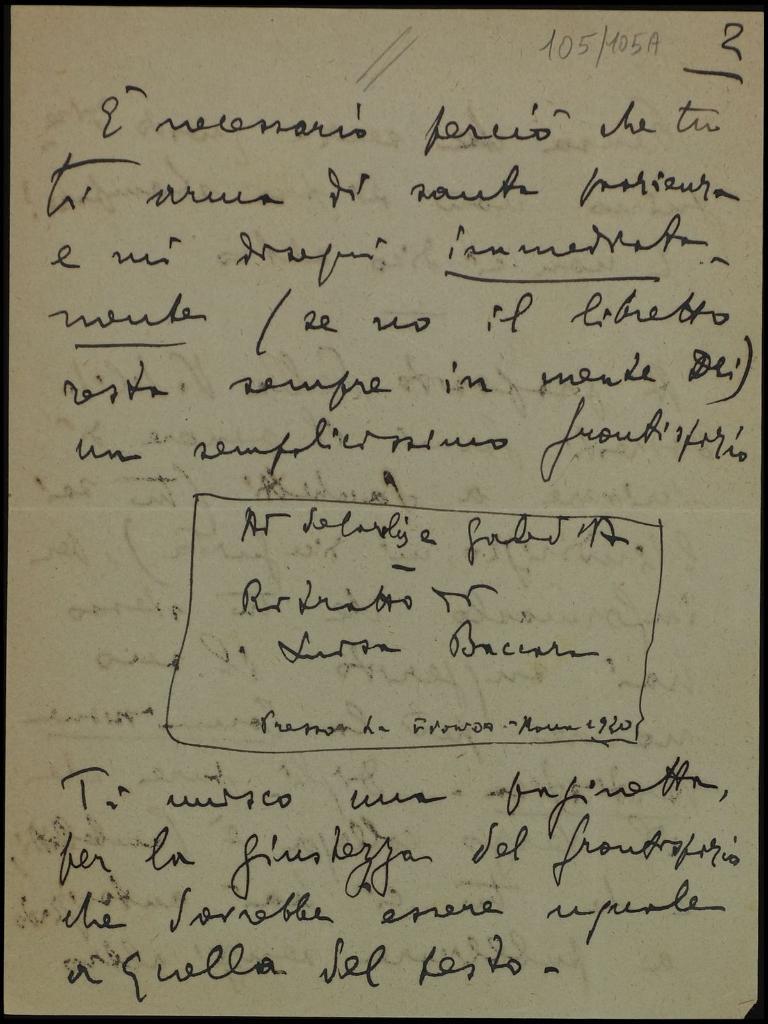 105/105A 2
È necessario perciò che tu
ti arma di santa pazienza
e mi disegni immediata-
mente (se no il libretto
resta sempre in mente Dei)
un semplicissimo frontispizio
Ritratto di
Luisa Baccara
Presso La Fionda - Roma 1920
Ti unisco una paginetta,
per la giustezza del frontispizio
che dovrebbe essere uguale
a quella del testo.